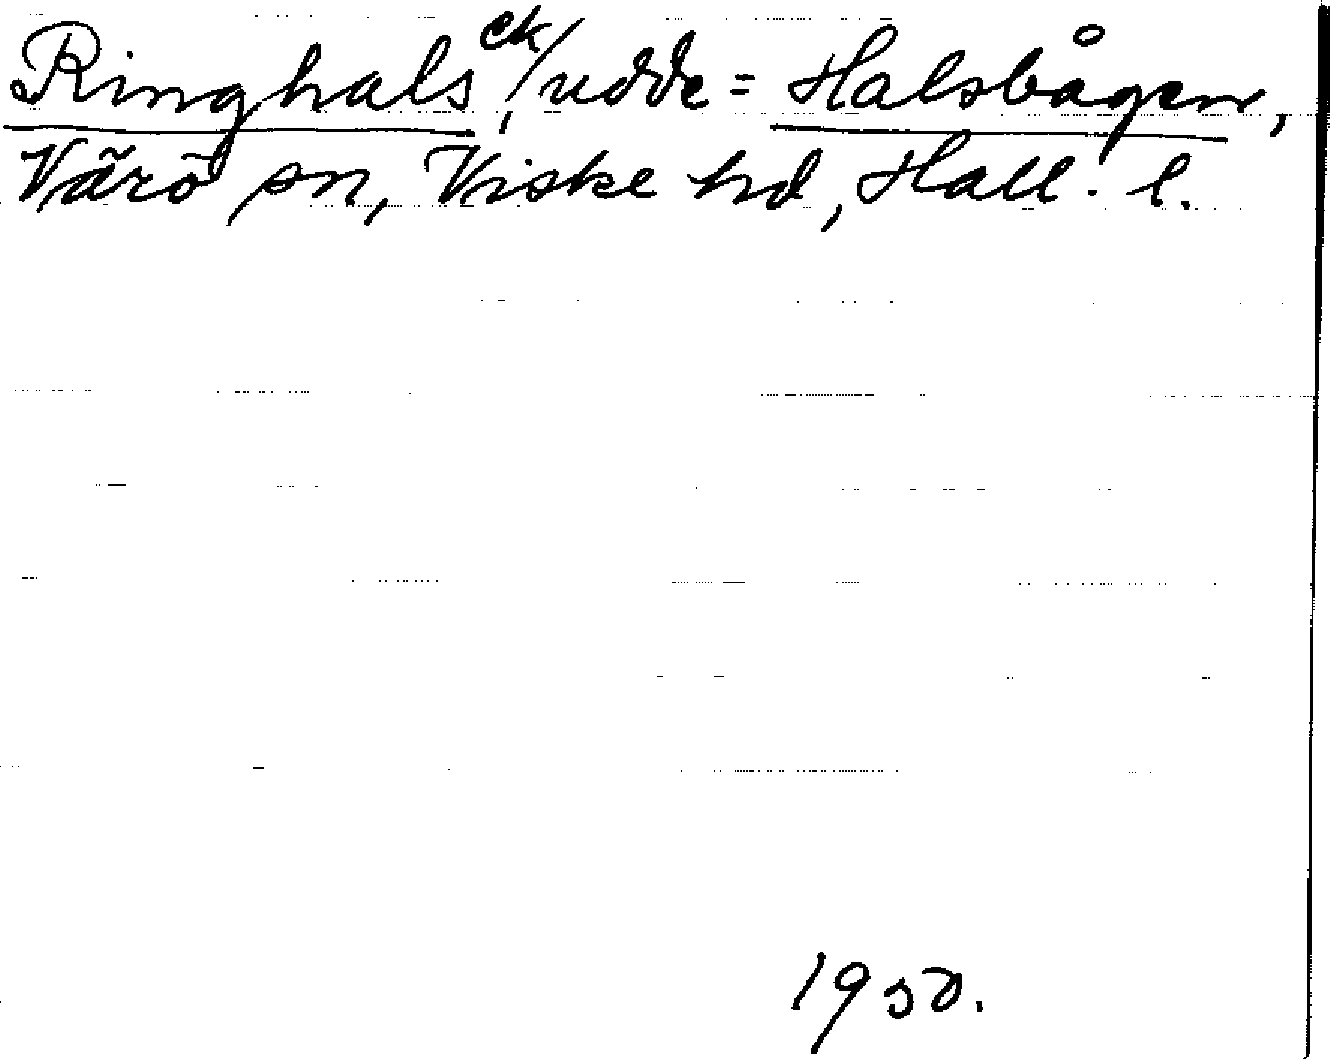 Ringhals, ek/udde = Halsbågen,
Värö sn, Viske hd, Hall. l.
1950.